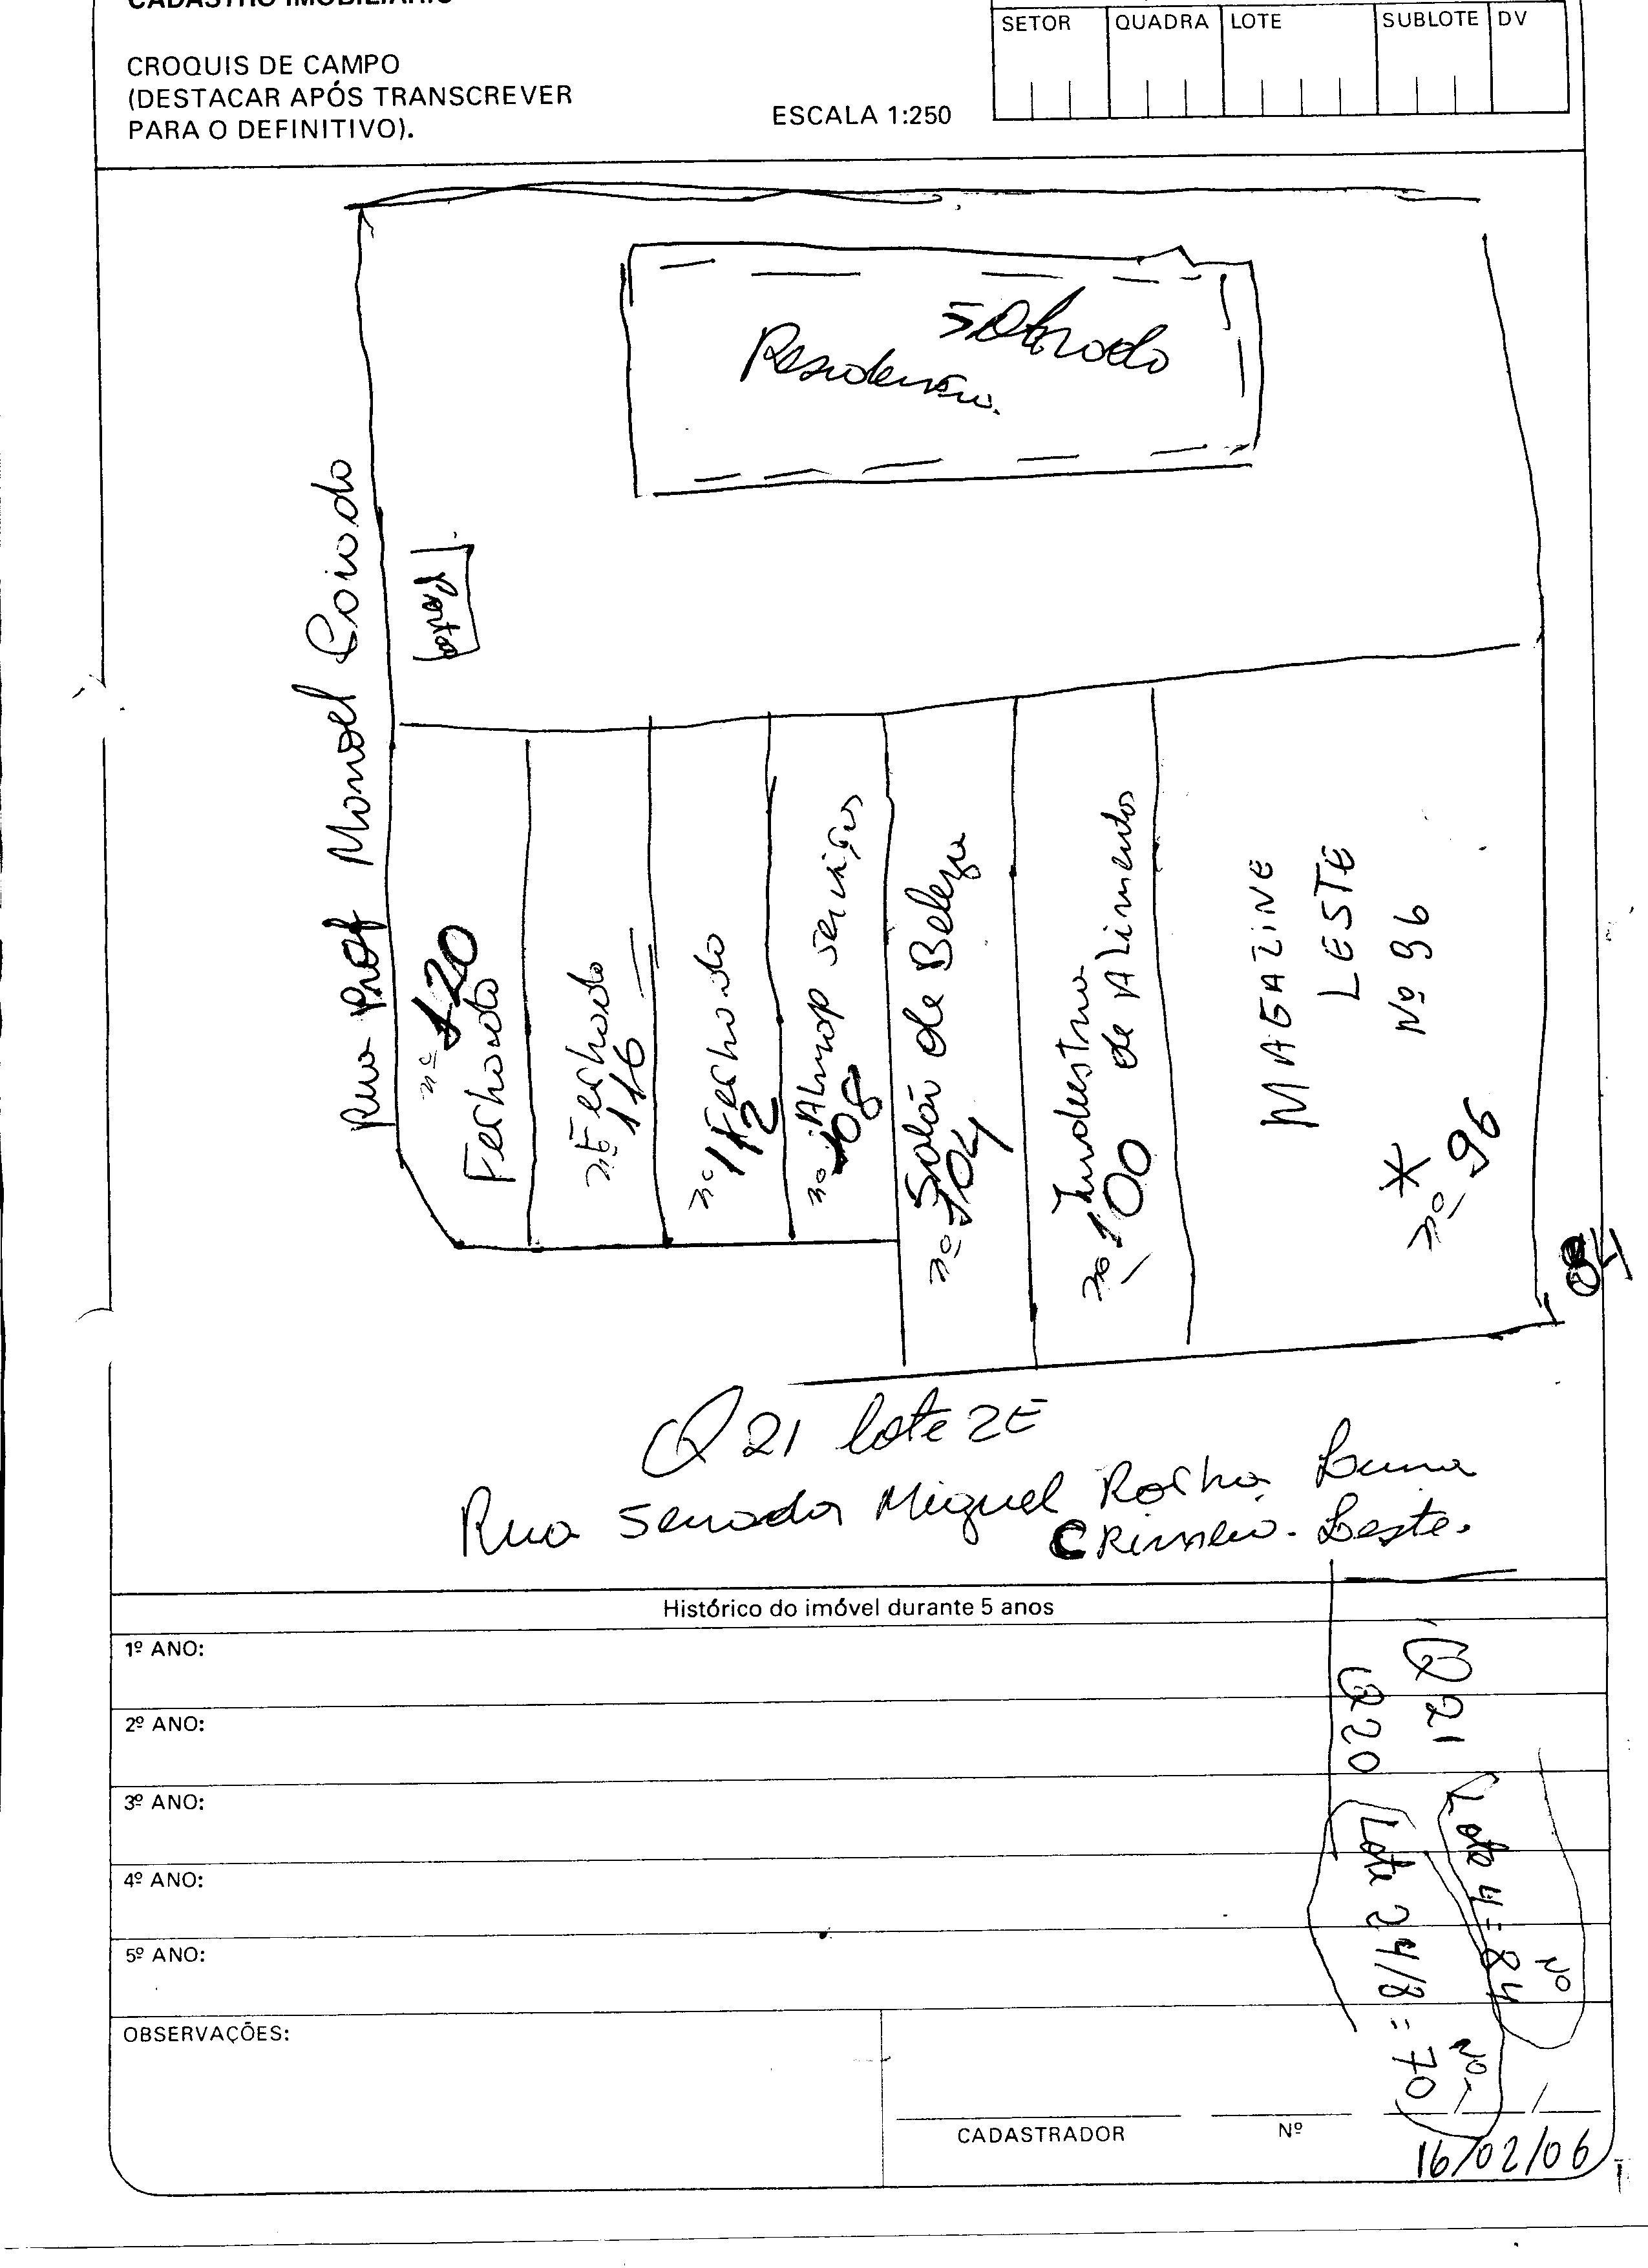 CADASTRO IMOBILIÁRIO
SETOR QUADRA LOTE SUBLOTE DV
CROQUIS DE CAMPO
(DESTACAR APÓS TRANSCREVER
PARA O DEFINITIVO).
ESCALA 1:250
Sobrado
Residencia.
Portão
Rua Prof Manoel
nº 120
Fechado
nº Fechado
116
nº Fechado
112
nº serviços
108
Salão de Beleza
nº 104
Industria
de Alimentos
nº 100
MAGAZINE
LESTE
Nº 96
* nº 96
84
Q 21 lote 2E
Rua Senador Miguel Rocha Lima
Leste.
Histórico do imóvel durante 5 anos
1º ANO:
2º ANO:
3º ANO:
4º ANO:
5º ANO:
Q 21 Lote 4 = Nº 84
Q 20 Lote 24/8 = Nº 70
OBSERVAÇÕES:
CADASTRADOR Nº
16/02/06